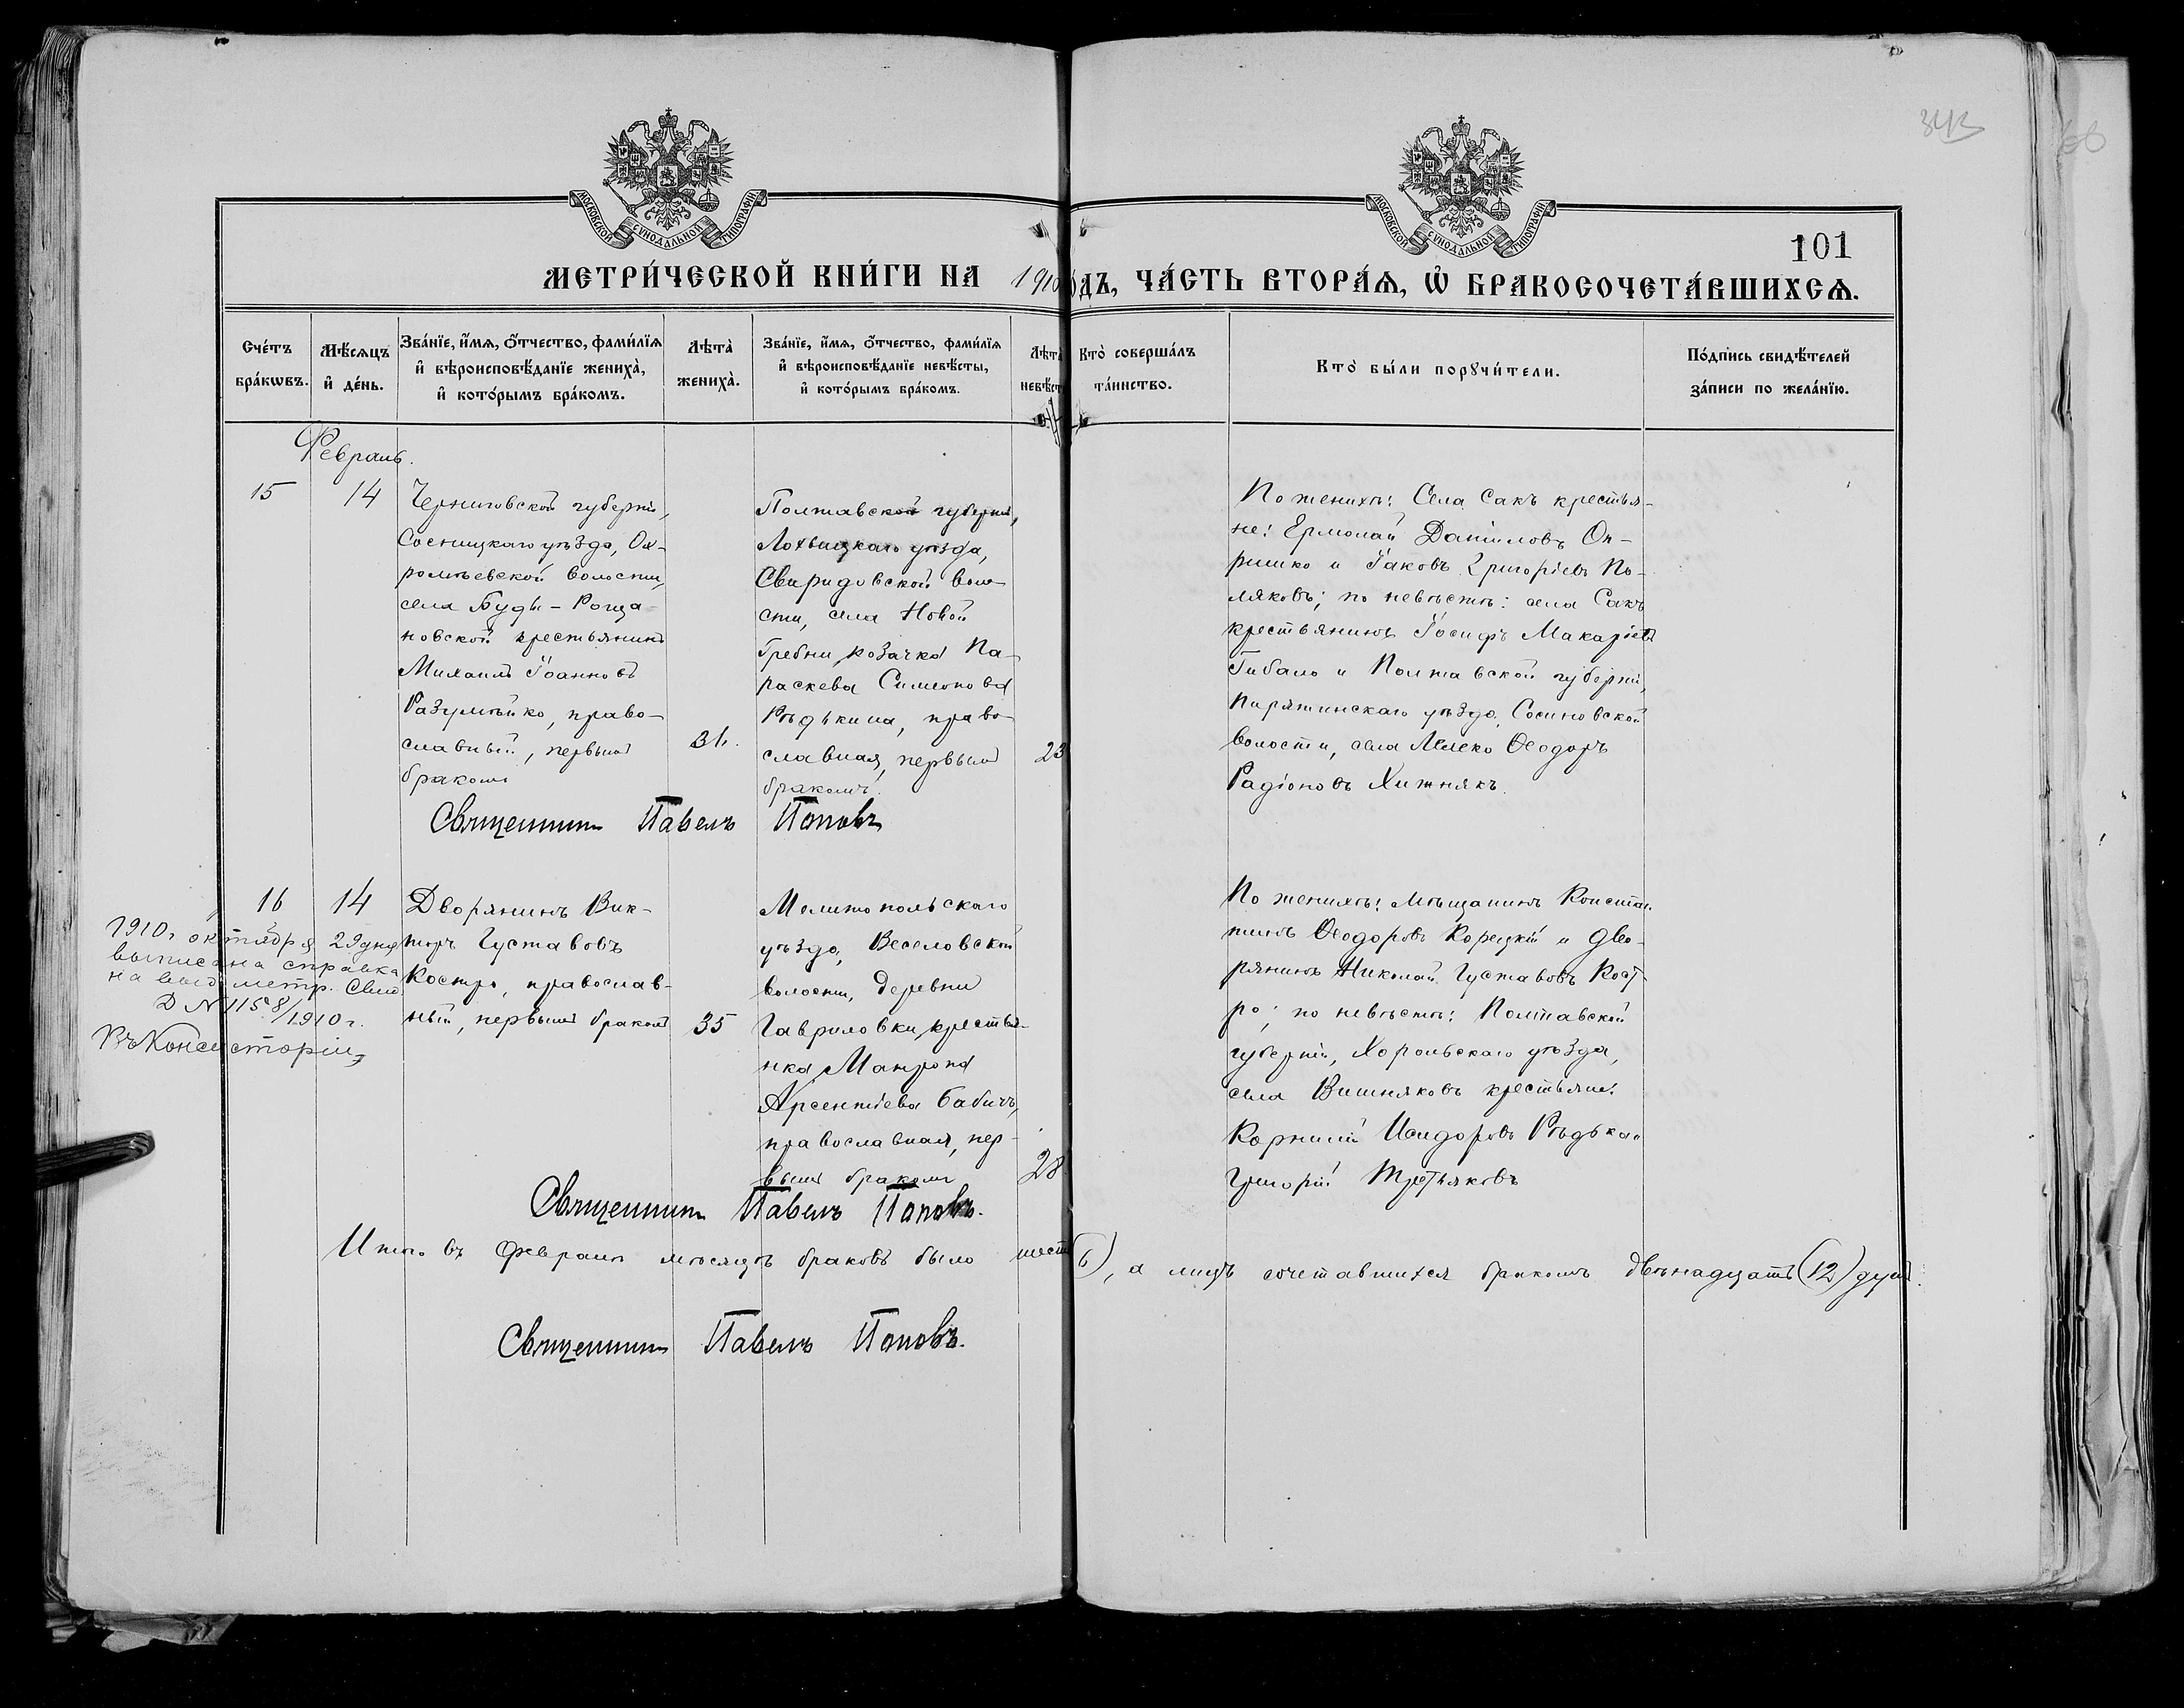 343
60
МОСКОВСКОЙ СУНОДАЛЬНОЙ ТИПОГРАФІИ
МОСКОВСКОЙ СУНОДАЛЬНОЙ ТИПОГРАФІИ
101
МЕТРИ́ЧЕСКОЙ КНИ́ГИ НА 1910 ДЪ, ЧА́СТЬ ВТОРА́Ѧ, Ѡ҆ БРАКОСОЧЕТА́ВШИХСѦ.
Сче́тъ бра́кѡвъ.
Мѣ́сѧцъ и҆ де́нь.
Зва́нїе, и҆́мѧ, ѻ҆́тчество, фами́лїѧ и҆ вѣроисповѣ́данїе жениха̀, и҆ кото́рымъ бра́комъ.
Лѣта̀ жениха̀.
Зва́нїе, и҆́мѧ, ѻ҆́тчество, фами́лїѧ и҆ вѣроисповѣ́данїе невѣ́сты, и҆ кото́рымъ бра́комъ.
Лѣта невѣст
Кто̀ соверша́лъ та́инство.
Кто̀ бы́ли порꙋчи́тели.
По́дпись свидѣ́телей за́писи по жела́нїю.
Февраль.
15
14
Черниговской губерніи,
Сосницкаго уѣзда, Ох-
ромѣевской волости,
села Буды-Роща-
новской крестьянинъ
Михаилъ Іоанновъ
Разумѣйко, право-
славный, первымъ
бракомъ
31.
Полтавской губерніи,
Лохвицкаго уѣзда,
Свиридовской воло-
сти, села Новой
Гребни, козачка Па-
раскева Симеонова
Рѣдькина, право-
славная, первымъ
бракомъ.
23
По женихѣ: Села Сакъ крестья-
не: Ермолай Даниловъ Оп-
ришко и Іаковъ Григоріевъ По-
ляковъ; по невѣстѣ: села Сакъ
крестьянинъ Іосифъ Макаріевъ
Гибало и Полтавской губерніи,
Пирятинскаго уѣзда, Сасиновской
волости, села Ѳеодоръ
Радіоновъ Хижнякъ.
Священникъ Павелъ Поповъ
16
14
Дворянинъ Вик-
торъ Густавовъ
Костро, православ-
ный, первымъ бракомъ
35
Мелитопольскаго
уѣзда, Веселовской
волости, деревни
Гавриловки, крестья-
нка Матрона
Арсентіева Бабичъ,
православная, пер-
вымъ бракомъ
28
По женихѣ: мѣщанинъ Констан-
тинъ Ѳеодоровъ Корецкій и дво-
рянинъ Николай Густавовъ Кост-
ро; по невѣстѣ: Полтавской
губерніи, Хорольскаго уѣзда,
села Вишняковъ крестьяне:
Корнилій Исидоровъ Рѣдька и
Григорій Третьяковъ
1910 г октября 29 дня
выписана справка
на выд метр. Свид.
Д N 1158/1910 г.
Въ Консисторіи
Священникъ Павелъ Поповъ.
Итого въ Февралѣ мѣсяцѣ браковъ было шесть 6), а лицъ сочетавшихся бракомъ двѣнадцать (12) душъ.
Священникъ Павелъ Поповъ.